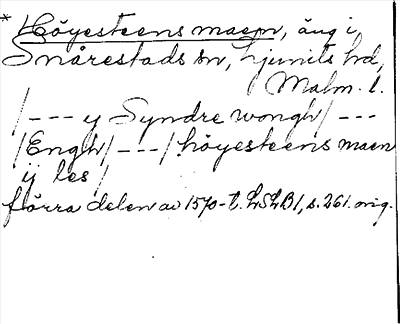 * Höyesteens maen, äng i
Snårestads sn, Ljunits hd,
Malm. l.
/--- y Syndre wongh/---
/Engh/---/ höyesteens maen
ij les/
förra delen av 1570-t. LSLB1, s. 261. orig.